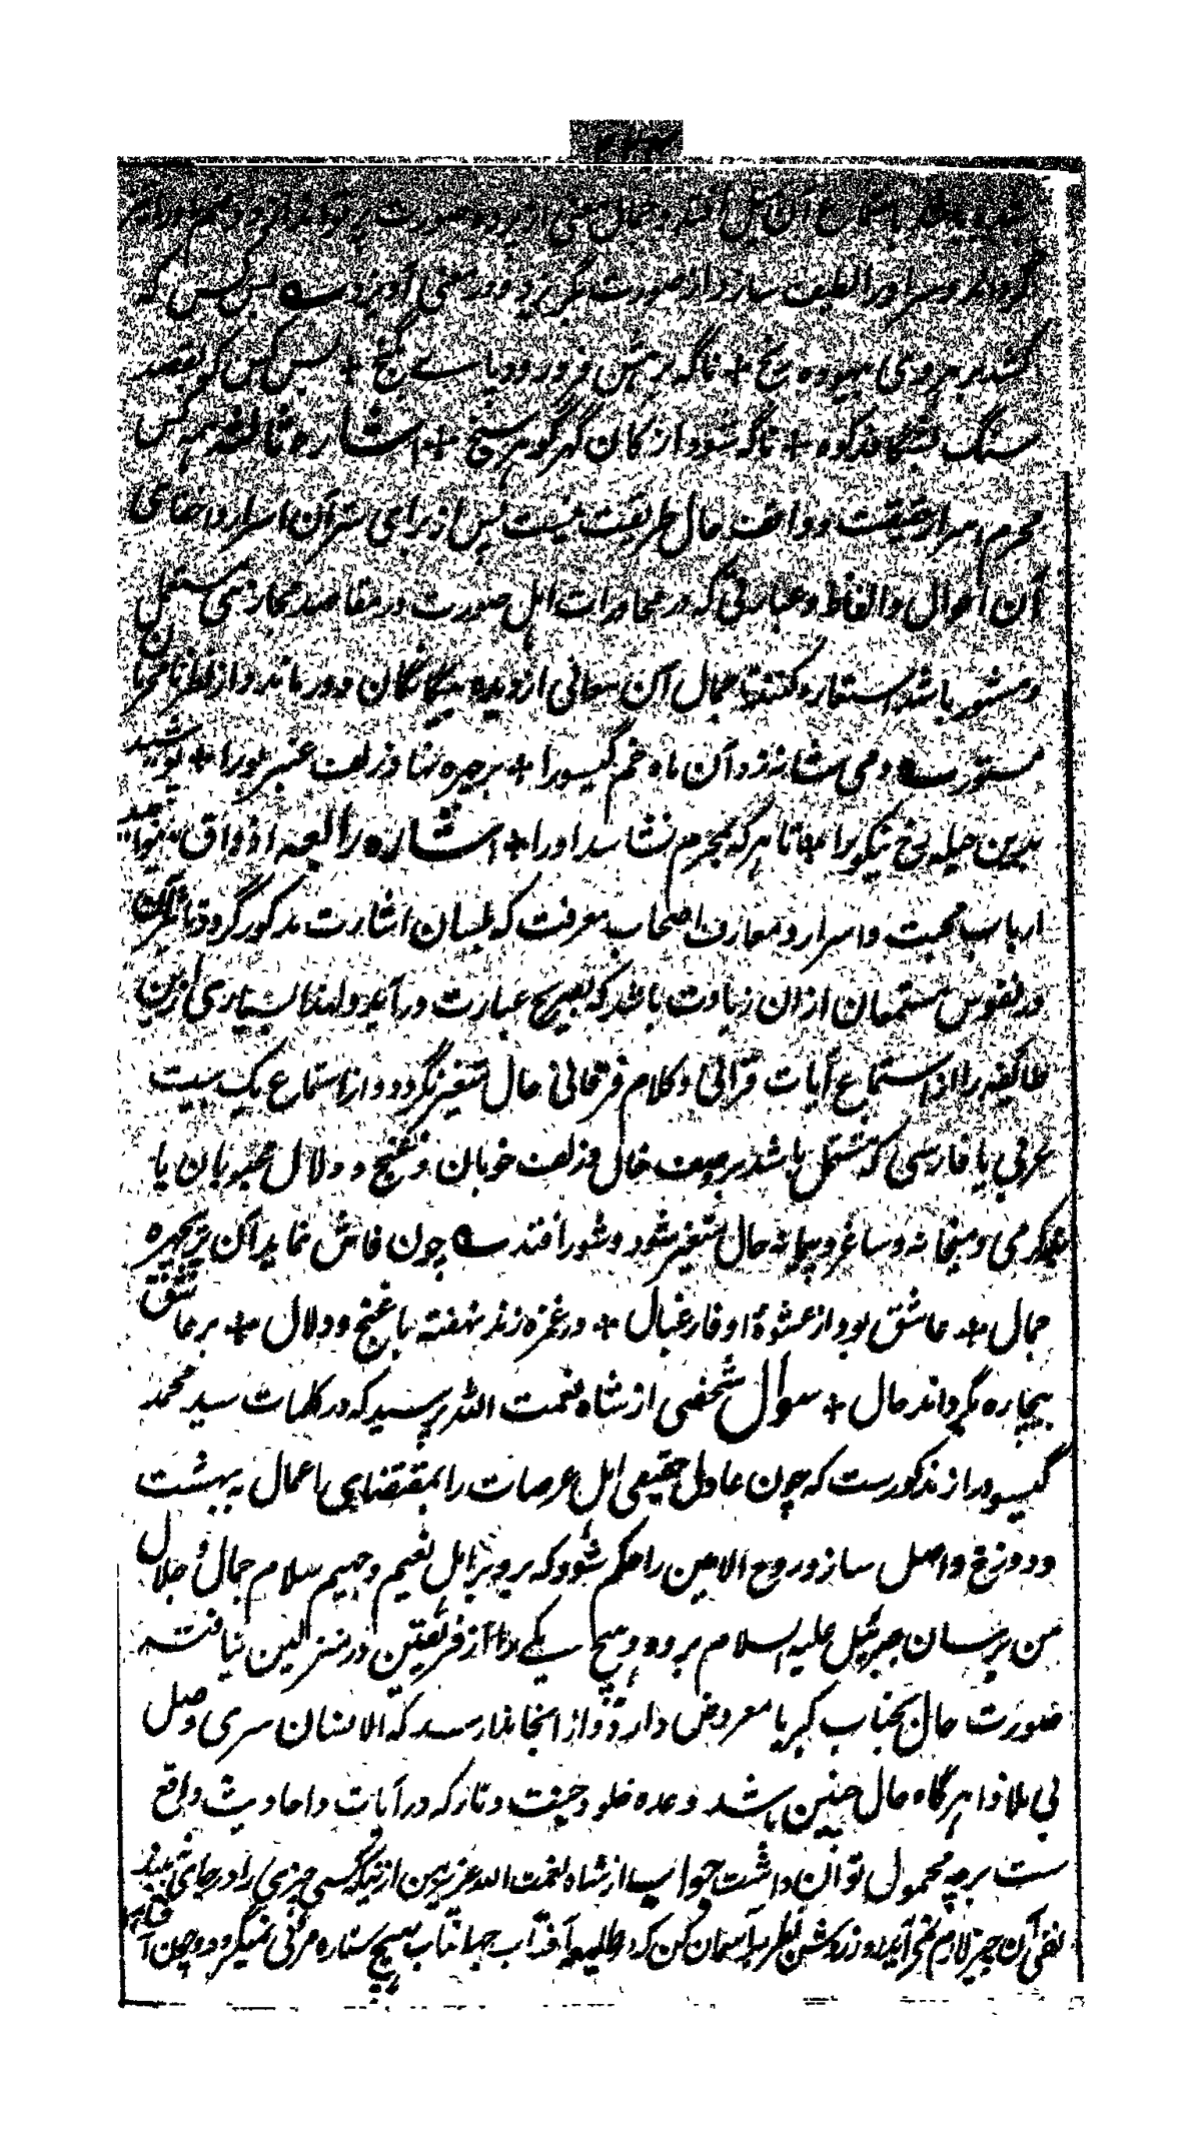 شده باشد استماع آن میل افتد و جمال معنی از پرده صورت پرتو اندازد و
گرداند و سر او را لطیف سازد از صورت بگریزد و در معنی آویزد ے بس کس که
کشد بر هروئی بیهوده رنج + ناگه بر هش فرو رود پا بے گنج + بس کس که بقصد
سنگ بشکافد کوه + ناگه شود از کان گهر گوهر سنج + اشاره ثالثه همه کس
محرم اسرار حقیقت و واقف حال طریقت نیست پس از برای ستر آن اسرار و اخفای
آن احوال و الفاظ و عباراتی که در محاورات اهل صورت در مقاصد مجازی مستعمل
و مشهور باشد استعاره کنند تا جمال آن معانی از دیده بیگانگان دور ماند و از نظر نامحرمان
مستور ے دی شانه زد آن ماه خم گیسو را + بر چهره نهاد زلف عنبر بو را + پوشید
بدین حیله رخ نیکو را + تا هر که نه محرم نشناسد او را + اشاره رابعه اذواق و مواجید
ارباب محبت و اسرار و معارف اصحاب معرفت که بلسان اشارت مذکور گردد تاثیر آن
در نفوس مستمعان از ان زیادت باشد که بصریح عبارت در آید و لهذا بسیاری ازین
طائفه را از استماع آیات قرآنی و کلام فرقانی حال متغیر نگردد و از استماع یک بیت
عربی یا فارسی که مشتمل باشد بر وصف خال و زلف خوبان و غنج و دلال محبوبان یا
بذکر می و میخانه و ساغر و پیمانه حال متغیر شود و شور افتد ے چون فاش نماید آن پریچهره
جمال + عاشق بود از عشوهٔ او فارغبال + در غمزه زند نهفته با غنج و دلال + بر عاشق
بیچاره بگرداند حال + سوال شخصی از شاه نعمت الله پرسید که در کلمات سید محمد
گیسودراز مذکورست که چون عادل حقیقی اهل عرصات را بمقتضای اعمال به بهشت
و دوزخ واصل سازد روح الامین را حکم شود که برو بر اهل نعیم و جحیم سلام جمال و جلال
من برسان جبرئیل علیه السلام برود و هیچ یکے را از فریقین در منزلین نیافته
صورت حال بجناب کبریا معروض دارد و از انجا ندا رسد که الانسان سری وصل
بی ملاذا هرگاه حال چنین باشد وعده خلود جنت و نار که در آیات و احادیث واقع
ست بر چه محمول توان داشت جواب از شاه نعمت الله عزیز من از نیکه کسی چیزی را در جای نه بیند
نفی آن چیز لازم نمی آید روز روشن نظر بر آسمان کن که در طلیعه آفتاب جهانتاب هیچ ستاره مرئی نمیگردد و چون آفتاب